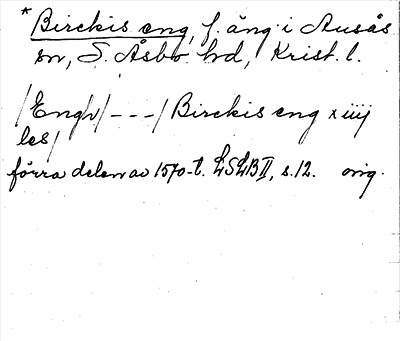 * Birckis eng, f. äng i Ausås
sn, S. Åsbo hd, Krist. l.
/Engh/ - - - / Birckis eng x iiij
les/
förra delen av 1570-t. LSLB II, s. 12. orig.